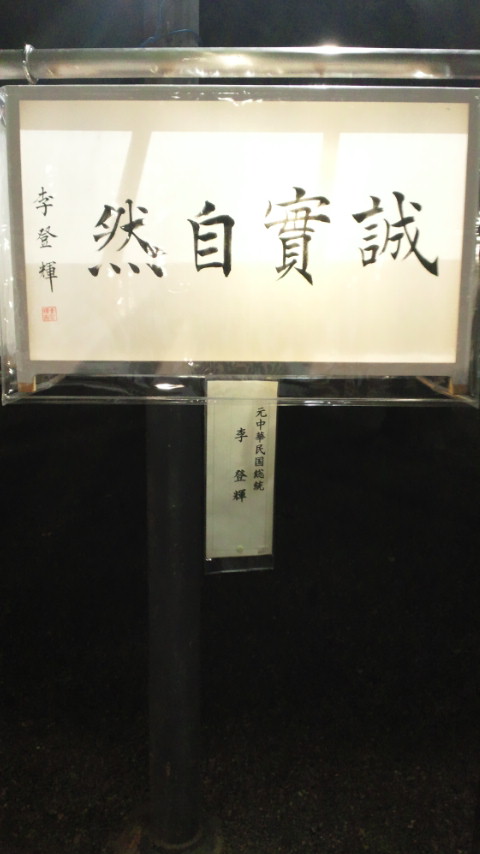 誠實自然
李登輝
元中華民国総統
李登輝